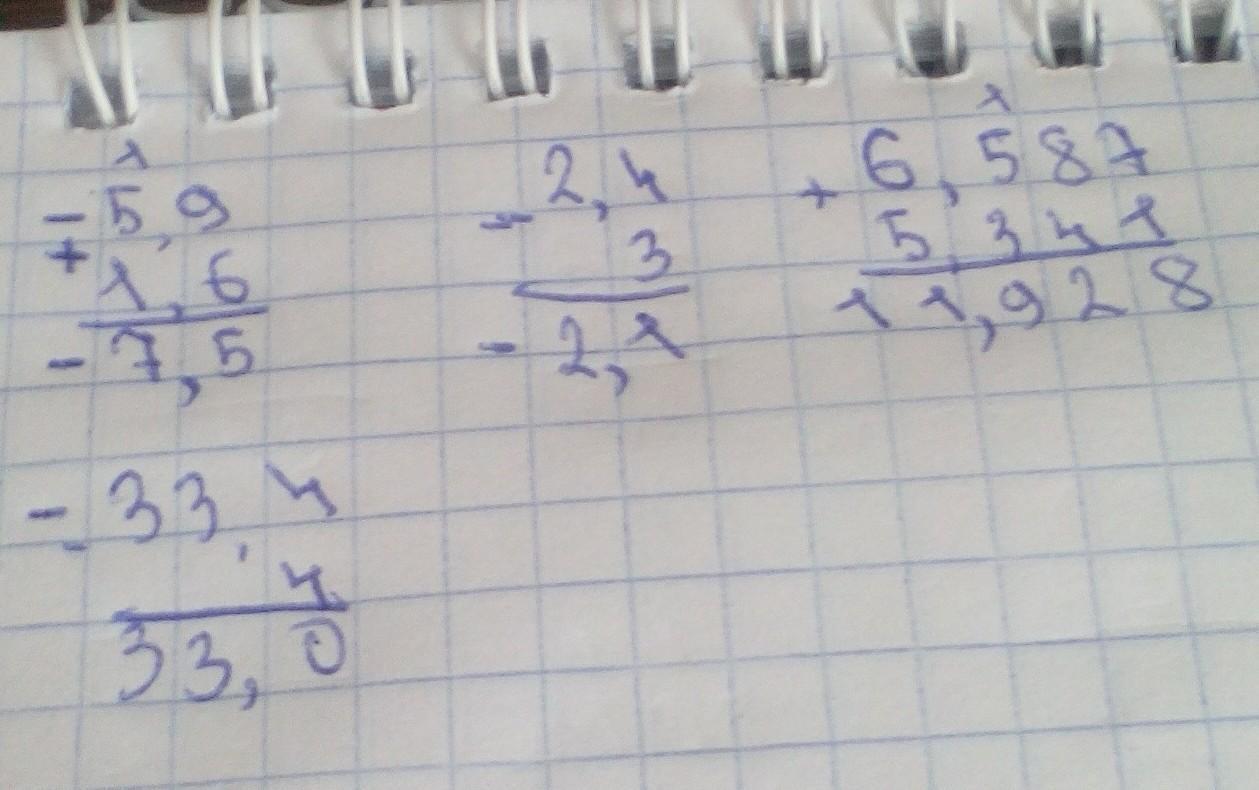 1
- 5,9
+ 1,6
- 7,5
- 2,4
3
- 2,1
1
+ 6,587
5,341
11,928
- 33,4
- 4
33,0